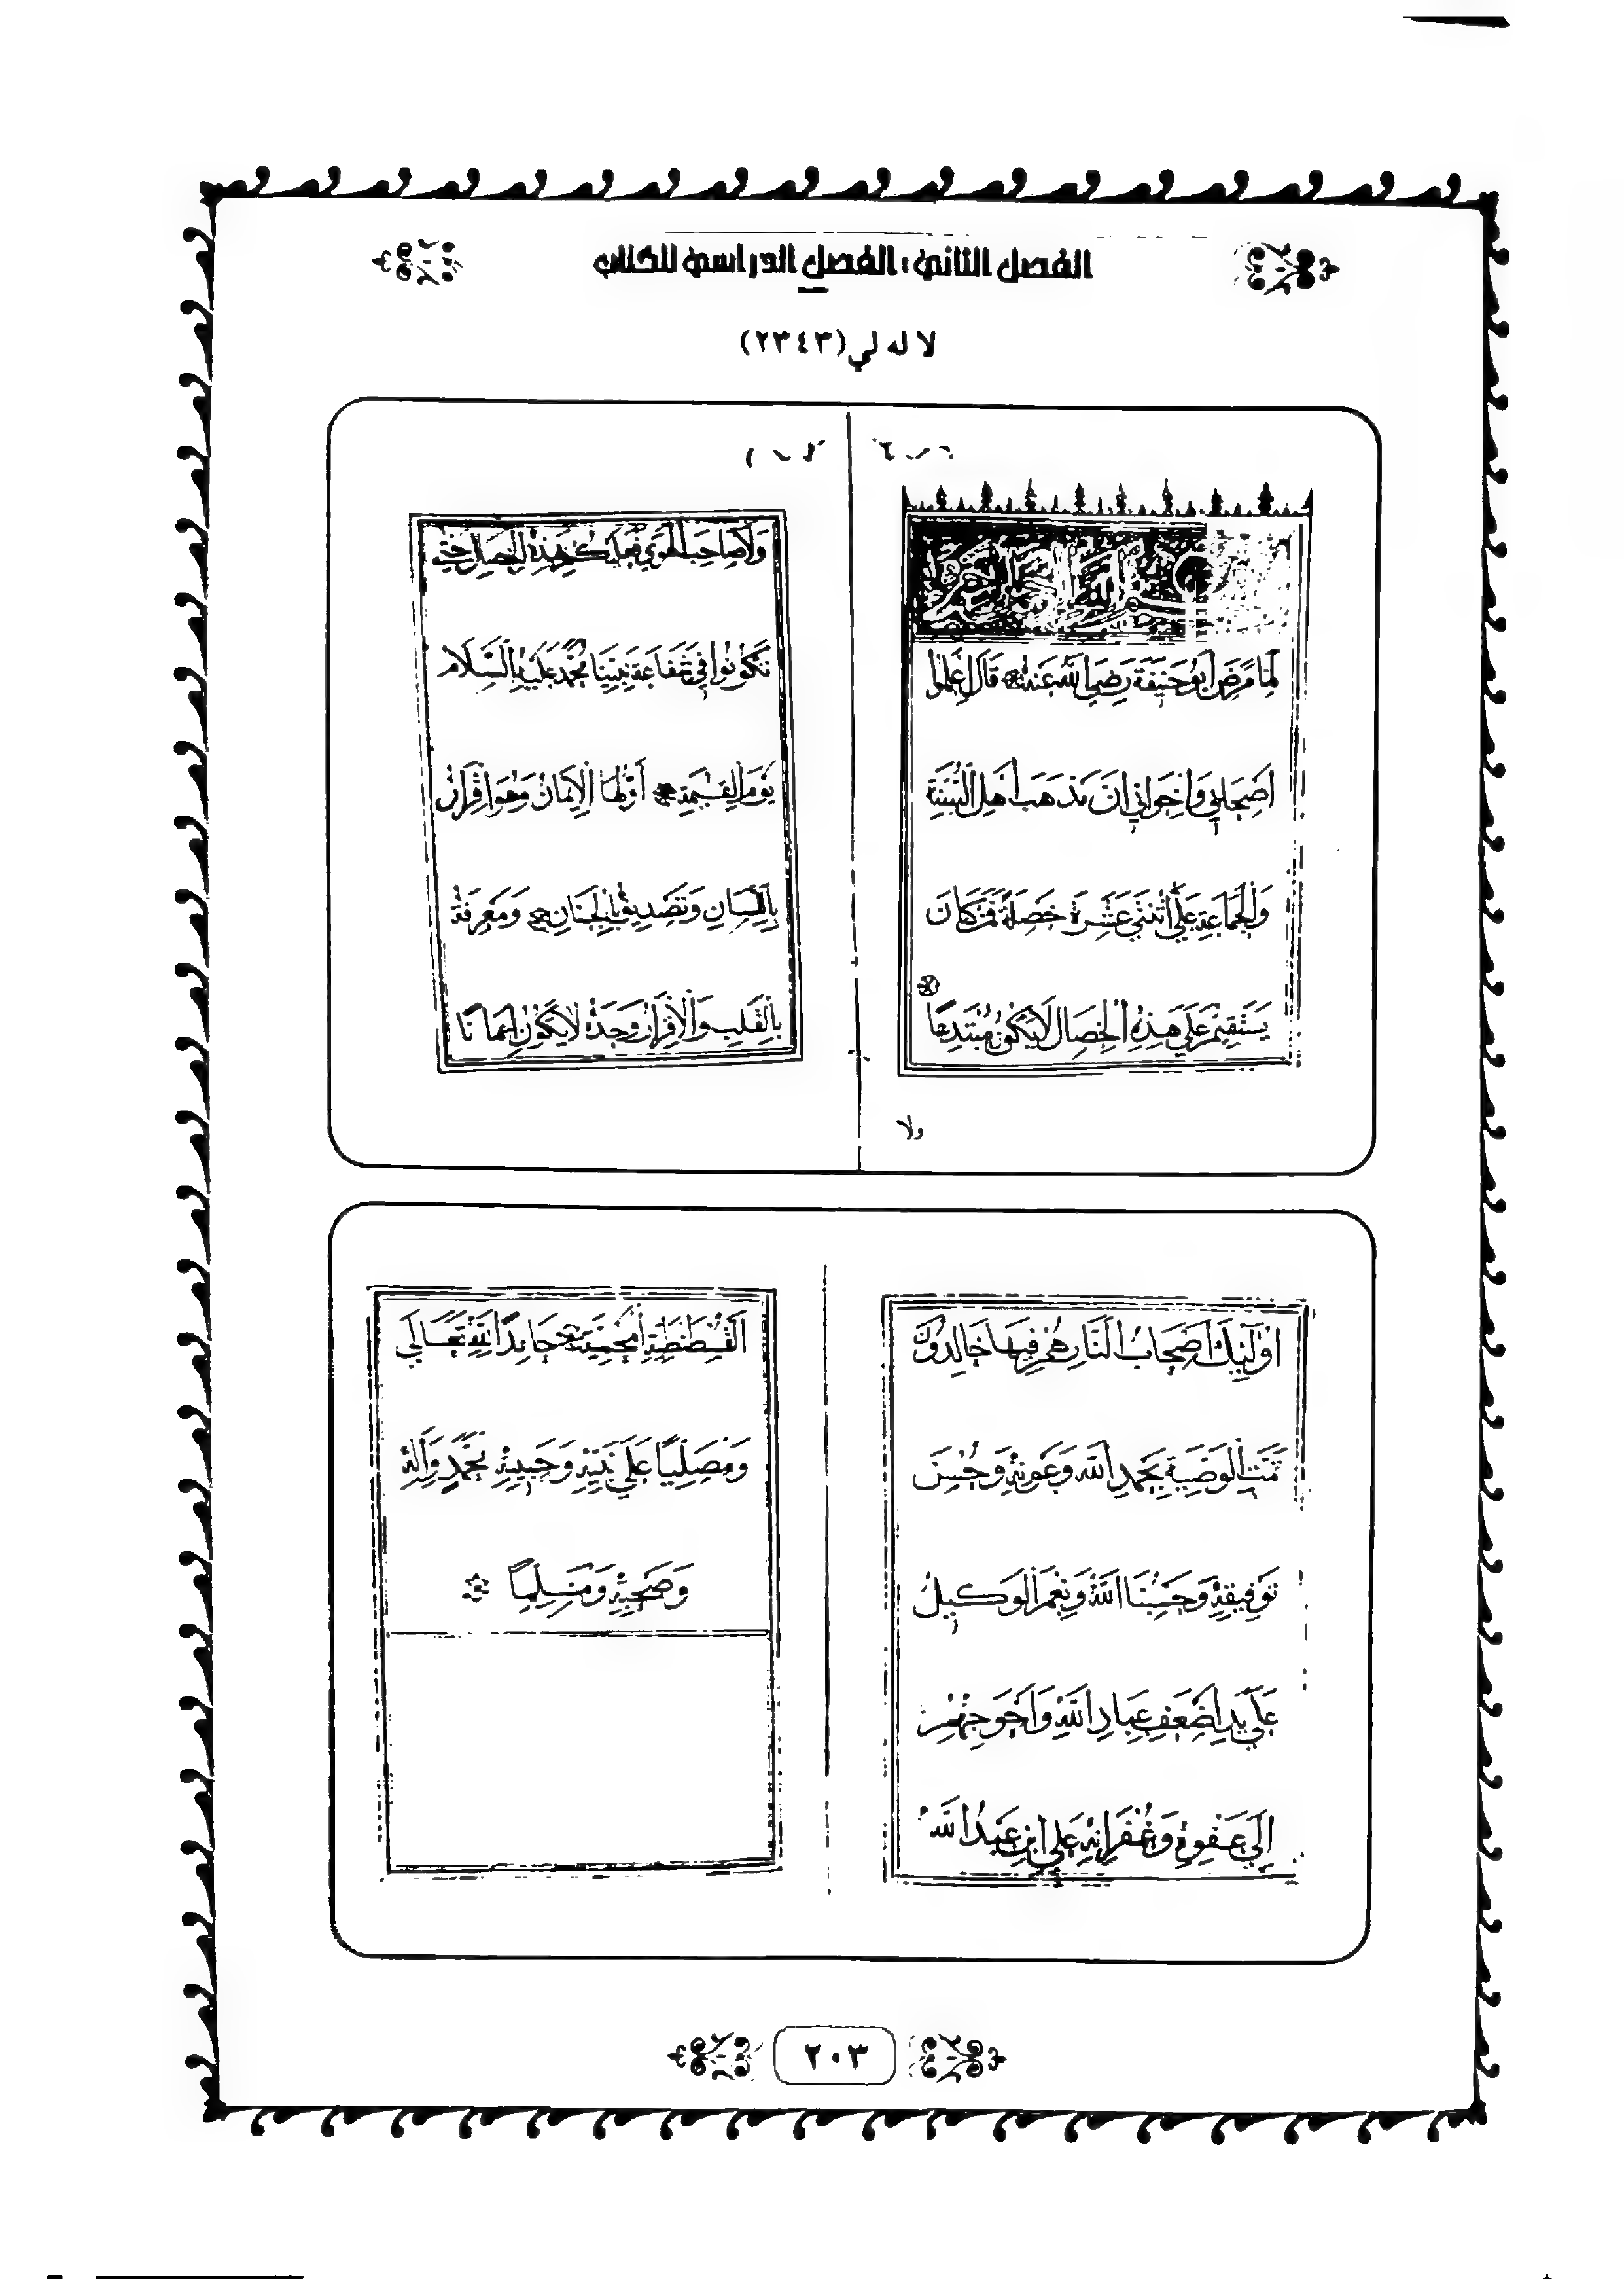 الفصل الثاني: الفصل الدراسي للكتاب
لا له لي (٢٣٤٣)
بسم الله الرحمن الرحيم
لَمَّا مَرِضَ أَبُو حَنِيفَةَ رَضِيَ اللهُ عَنْهُ قَالَ اِعْلَمُوا
اَصْحَابِي وَاِخْوَانِي اِنَّ مَذْهَبَ اَهْلِ السُّنَّةِ
وَالْجَمَاعَةِ عَلَى اثْنَتَيْ عَشَرَةَ خَصْلَةً فَمَنْ كَانَ
يَسْتَقِيمُ عَلَى هَذِهِ الْخِصَالِ لَا يَكُونُ مُبْتَدِعًا
ولا
وَلَا صَاحِبَ الْهَوَى فَعَلَيْكُمْ بِهَذِهِ الْخِصَالِ حَتَّى
تَكُونُوا فِي شَفَاعَةِ نَبِيِّنَا مُحَمَّدٍ عَلَيْهِ السَّلَام
يَوْمَ الْقِيمَةِ اَوَّلُهَا الْاِيمَانُ وَهُوَ اِقْرَارٌ
بِاللِّسَانِ وَتَصْدِيقٌ بِالْجَنَانِ وَمَعْرِفَةٌ
بِالْقَلْبِ وَالْاِقْرَارُ وَحْدَهُ لَا يَكُونُ اِيمَانًا
اُولَئِكَ اَصْحَابُ النَّارِ هُمْ فِيهَا خَالِدُونَ
تَمَّتِ الْوَصِيَّةُ بِحَمْدِ اللهِ وَعَوْنِهِ وَحُسْنِ
تَوْفِيقِهِ وَحَسْبُنَا اللهُ وَنِعْمَ الْوَكِيلُ
عَلَى يَدِ اَضْعَفِ عِبَادِ اللهِ وَاَحْوَجِهِمْ
اِلَى عَفْوِهِ وَغُفْرَانِهِ عَلِي ابْنِ عَبْدُ اللهِ
وَمُصَلِّيًا عَلَى نَبِيِّهِ وَحَبِيبِهِ مُحَمَّدٍ وَآلِهِ
وَصَحْبِهِ وَمُسَلِّمًا
٢٠٣